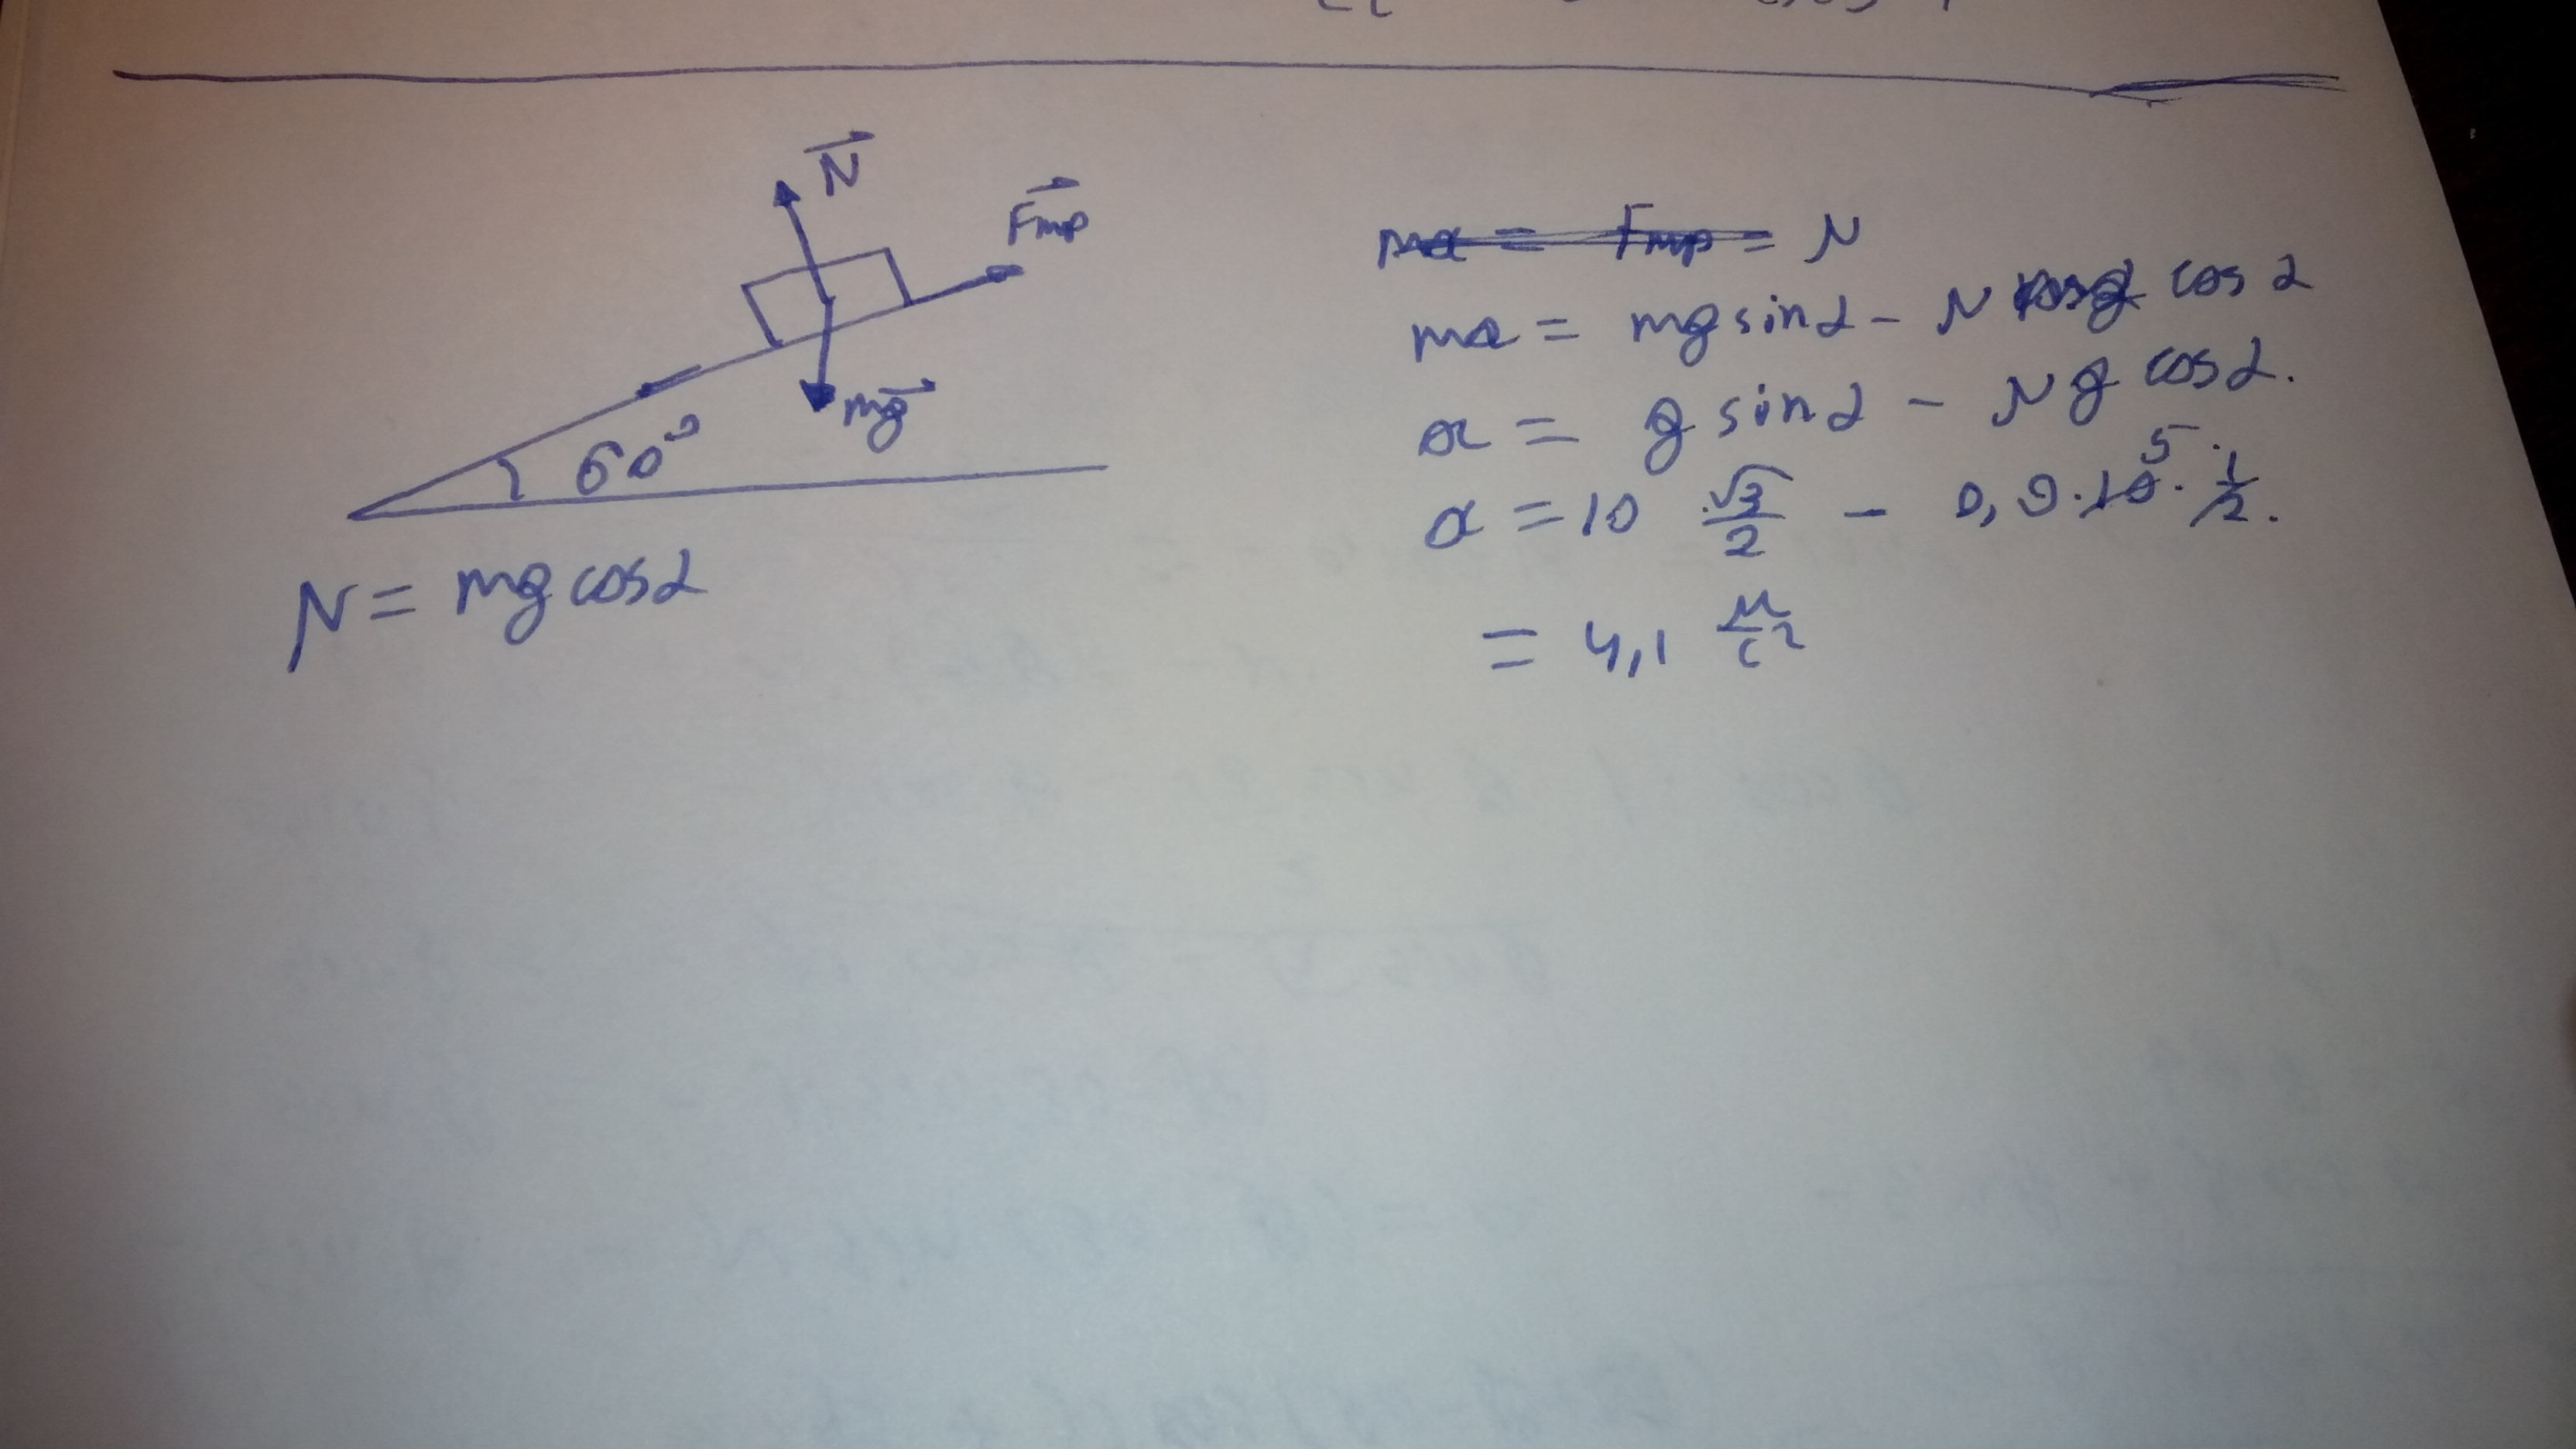 N
Fтр
mg
60°
N = mg cos α
ma = Fтр = μ
ma = mg sin α - μ cos α
a = g sin α - μ g cos α.
a = 10 · √3/2 - 0,9 · 10 5 · 1/2.
= 4,1 м/с²